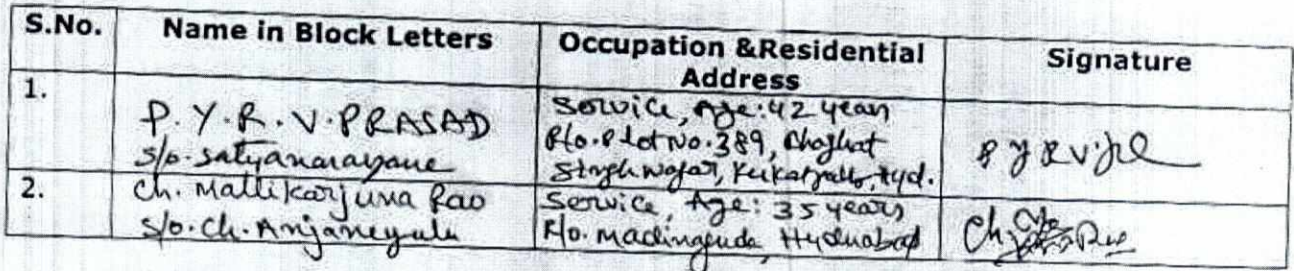 S.No. Name in Block Letters Occupation &Residential Address Signature
1.
P.Y.R.V.PRASAD
S/o. Satyanarayane
Service, Age: 42 years
R/o. Plot No. 389, Bhaghat
Singh Nagar, Kukatpally, Hyd.
2.
Ch. Mallikarjuna Rao
S/o. Ch. Anjaneyulu
Service, Age: 35 years
R/o. Madinaguda, Hyderabad